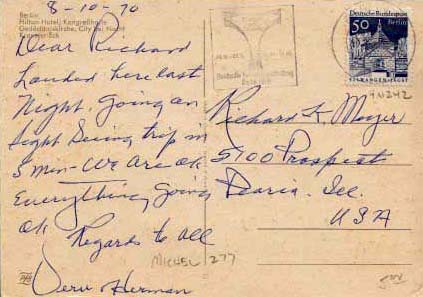 8-10-70
Berlin
Hilton Hotel, Kongreßhalle
Gedächtniskirche, City bei Nacht
Dear Richard
Landed here last
Night. Going on
Sight Seeing trip in
5 min - We Are ok
Everything going
ok Regards to all
Herman
Deutsche Bundespost
Berlin
50
ELLWANGEN/JAGST
9N242
Richard K. Meyer
5700 Prospect
Peoria. Ill.
USA
MICHEL 277